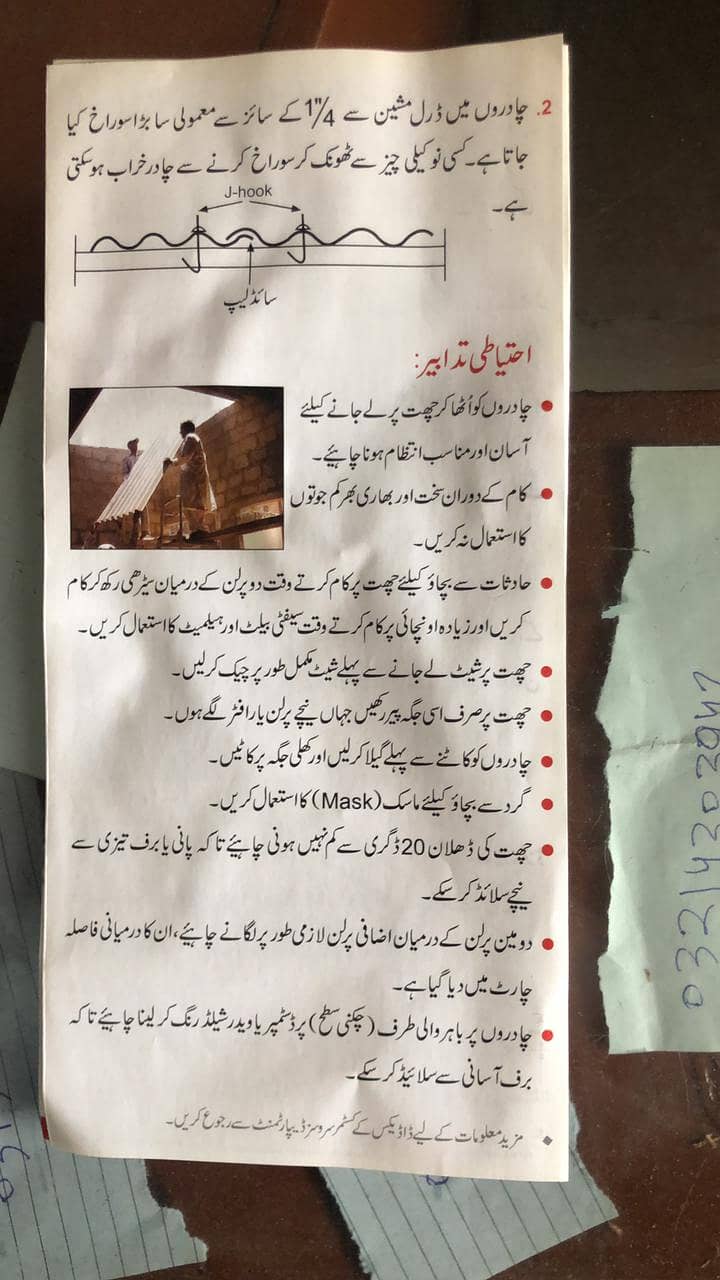 2. چادروں میں ڈرل مشین سے 1/4" کے سائز سے معمولی سا بڑا سوراخ کیا
جاتا ہے۔ کسی نوکیلی چیز سے ٹھونک کر سوراخ کرنے سے چادر خراب ہو سکتی
ہے۔
J-hook
سائڈ لیپ
احتیاطی تدابیر:
● چادروں کو اُٹھا کر چھت پر لے جانے کیلئے
آسان اور مناسب انتظام ہونا چاہیئے۔
● کام کے دوران سخت اور بھاری بھر کم جوتوں
کا استعمال نہ کریں۔
● حادثات سے بچاؤ کیلئے چھت پر کام کرتے وقت دو پرلن کے درمیان سیڑھی رکھ کر کام
کریں اور زیادہ اونچائی پر کام کرتے وقت سیفٹی بیلٹ اور ہیلمیٹ کا استعمال کریں۔
● چھت پر شیٹ لے جانے سے پہلے شیٹ مکمل طور پر چیک کر لیں۔
● چھت پر صرف اسی جگہ پیر رکھیں جہاں نیچے پرلن یا رافٹر لگے ہوں۔
● چادروں کو کاٹنے سے پہلے گیلا کر لیں اور کھلی جگہ پر کاٹیں۔
● گرد سے بچاؤ کیلئے ماسک (Mask) کا استعمال کریں۔
● چھت کی ڈھلان 20 ڈگری سے کم نہیں ہونی چاہیئے تا کہ پانی یا برف تیزی سے
نیچے سلائڈ کر سکے۔
● دو مین پرلن کے درمیان اضافی پرلن لازمی طور پر لگانے چاہیئے، ان کا درمیانی فاصلہ
چارٹ میں دیا گیا ہے۔
● چادروں پر باہر والی طرف (چکنی سطح) پر ڈسٹمپر یا ویدر شیلڈ رنگ کر لینا چاہیئے تا کہ
برف آسانی سے سلائیڈ کر سکے۔
◆ مزید معلومات کے لیے ڈاڈیکس کے کسٹمر سروسز ڈیپارٹمنٹ سے رجوع کریں۔